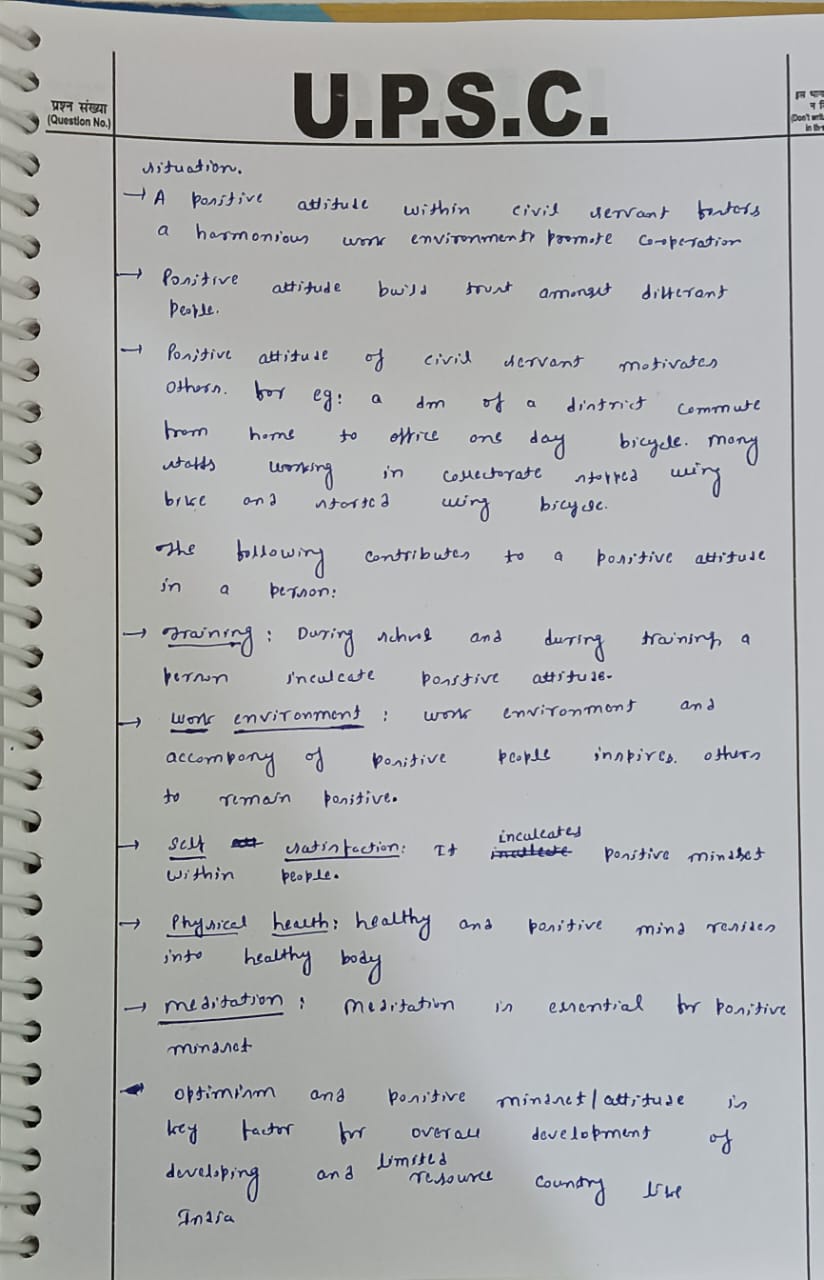 प्रश्न संख्या
(Question No.)
U.P.S.C.
situation.
→ A positive attitude within civil servant fosters
a harmonious work environment, promote co-operation
→ Positive attitude build trust amongst different
people.
→ Positive attitude of civil servant motivates
others. for eg: a dm of a district commute
from home to office one day bicycle. many
staffs working in collectorate stopped using
bike and started using bicycle.
The following contributes to a positive attitude
in a person:
→ Training : During school and during training, a
person inculcate positive attitude.
→ work environment : work environment and
accompany of positive people inspires. others
to remain positive.
→ Self satisfaction: It inculcates positive mindset
within people.
→ Physical health: healthy and positive mind resides
into healthy body
→ meditation : meditation is essential for positive
mindset
optimism and positive mindset/attitude is
key factor for overall development of
developing and limited resource country like
India